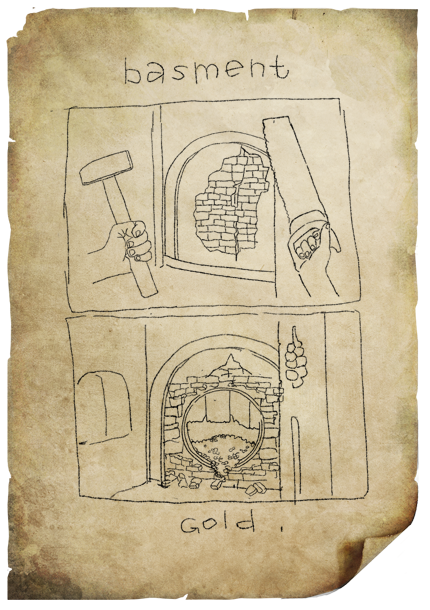 basment
Gold.